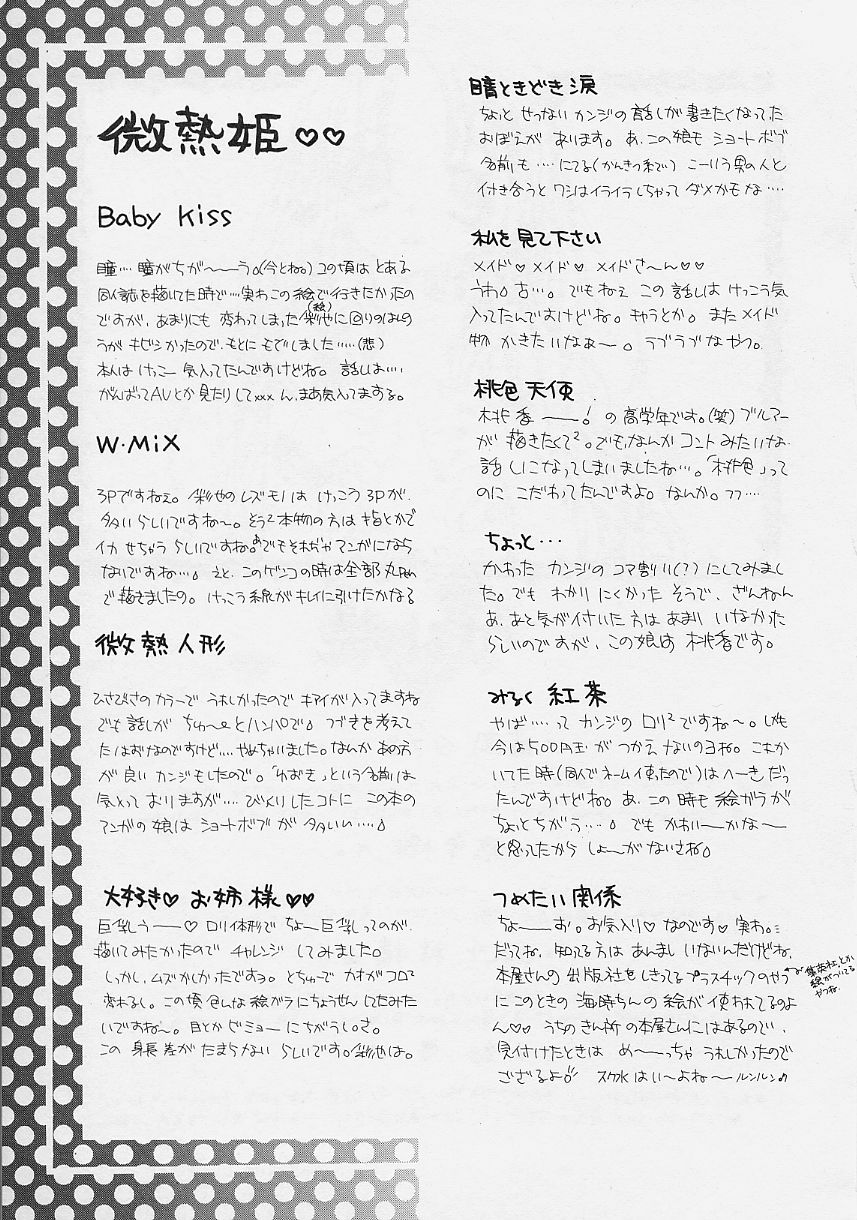 微熱姫♡♡
Baby Kiss
瞳‥‥瞳がちが〜〜う。(今とね。) コの頃は とある
同人誌を描いてた時で‥‥実わこの絵で行きたかったの
ですが、あまりにも 変わってしまった彩也に
うが キビシかったので、もとにもどしました‥‥(悲)
本人は けっこー 気入ってたんですけどね。 話しは‥‥
がんばってAVとか見たりしてxxx ん、まあ気入ってまする。
W・MiX
3Pですねぇ。 彩也のレズモノは けっこう3Pが、
多いらしいですね〜。 どうも本物の方は 指とかで
イカせちゃうらしいですね。でもそれぢゃマンガになら
ないですね‥‥。 えと、このゲンコの時は全部丸Pen
で描きましたの。 けっこう線がキレイに引けたかなる
微熱人形
ひさびさの カラーで うれしかったので キアイが入ってますね
でも 話しが ちゅ〜とハンパで。 つづきを考えて
たはずなのですけど‥‥やめちゃいました。なんか あの方
が良い カンジもしたので。「ゆずき」という名前は
気入って おりますが‥‥ びっくりしたコトに この本の
マンガの 娘は ショートボブ が 多いい‥‥。
大好き♡ お姉様♡♡
巨乳しう〜♡ ロリ体形で ちょー巨乳ってのが、
描いてみたかったので チャレンジ してみました。
しかし、ムズかしかったですョ。とちゅーで カオがコロコロ
変わるし。この頃 色んな絵ガラにちょうせん してたみた
いですね〜。 目とか ビミョーにちがうしさ。
この 身長差が たまらない らしいです。彩也は。
晴ときどき涙
ちょっと せつない カンジの 話しが 書きたくなってた
おぼえが あります。 あ、この娘も ショートボブ
名前も‥‥にてる こーいう男の人と
付き合うと ワシはイライラしちゃって ダメかもな‥‥
私を見て下さい
メイド♡ メイド♡ メイドさ〜ん♡♡
うわ。古‥‥。 でもねぇ この話しは けっこう気
入ってたんですけどね。キャラとか。 また メイド
物 かきたいなぁ〜。 ラブラブなやつ。
桃色天使
桃香〜! の 高学年です。(笑) ブルマー
が 描きたくて²。でも、なんか コント みたいな
話しになってしまいましたね‥‥。「桃色」って
のに こだわってたんですよ。なんか。フフ‥‥
ちょっと‥‥
かわった カンジの コマ割り(?) にしてみまし
た。でも わかりにくかった そうで、ざんねん
あ、あと気が付いた 方は あまり いなかった
らしいのですが、この娘は 桃香です。
みるく紅茶
やば‥‥って カンジの ロリ²ですね〜。しかも
今は500円玉が つかえないのョね。 これか
いてた時(同人でネーム使ったので)は へーきだっ
たんですけどね。 あ、この時も 絵ガラが
ちょっとちがう‥‥。 でも かわいーかな〜
と思ってたから しょ〜がないさね。
つめたい関係
ちょ〜す。お気入り♡ なのです♡ 実わ。
だってね、知ってる方は あんまし いないんだけどね、
本屋さんの 出版社をしきってるプラスチックのやつ
集英社とか
絵がついてる
やつね
に このときの 海時ちんの 絵が 使われてるのよ
ん♡♡ うちのきん所の本屋さんにはあるので、
見付けたときは め〜っちゃ うれしかったので
ござるよ。 スク水 はい〜よね〜 ルンルン♪